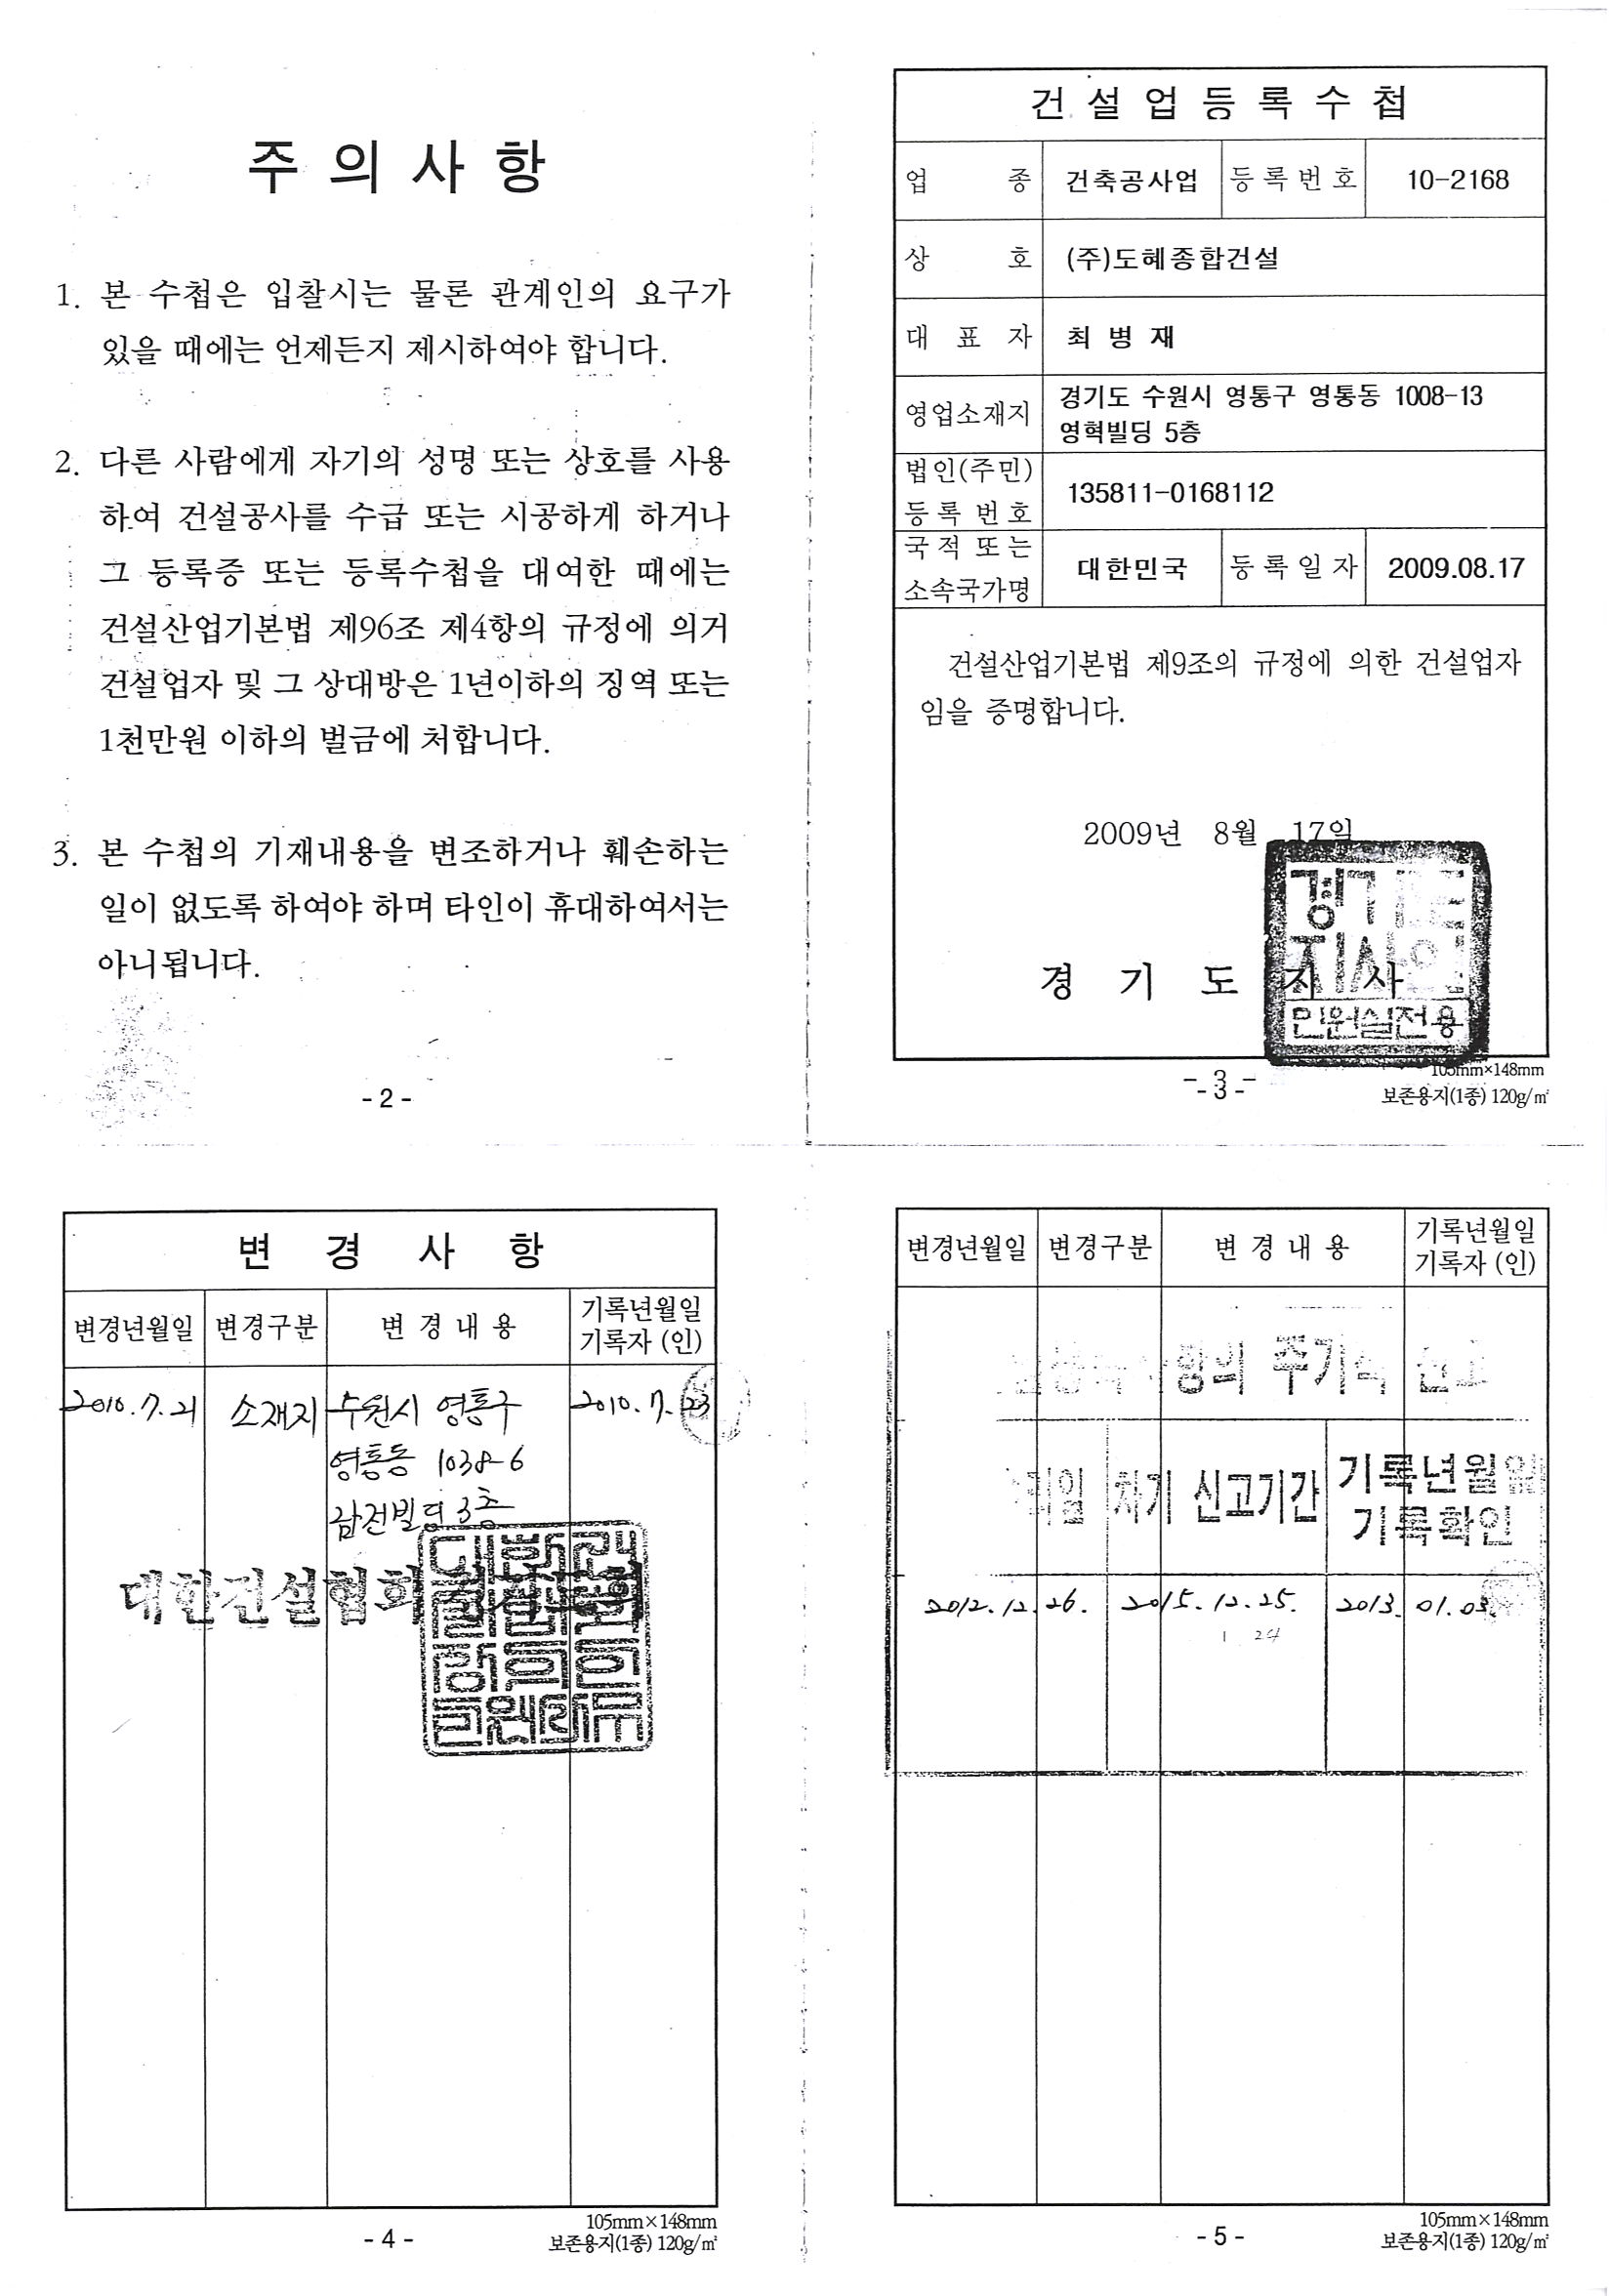 주 의 사 항
1. 본 수첩은 입찰시는 물론 관계인의 요구가
있을 때에는 언제든지 제시하여야 합니다.
2. 다른 사람에게 자기의 성명 또는 상호를 사용
하여 건설공사를 수급 또는 시공하게 하거나
그 등록증 또는 등록수첩을 대여한 때에는
건설산업기본법 제96조 제4항의 규정에 의거
건설업자 및 그 상대방은 1년이하의 징역 또는
1천만원 이하의 벌금에 처합니다.
3. 본 수첩의 기재내용을 변조하거나 훼손하는
일이 없도록 하여야 하며 타인이 휴대하여서는
아니됩니다.
- 2 -
건 설 업 등 록 수 첩
업 종 건축공사업 등 록 번 호 10-2168
상 호 (주)도혜종합건설
대 표 자 최 병 재
영업소재지 경기도 수원시 영통구 영통동 1008-13
영혁빌딩 5층
법인(주민)
등 록 번 호 135811-0168112
국 적 또 는
소속국가명 대한민국 등 록 일 자 2009.08.17
건설산업기본법 제9조의 규정에 의한 건설업자
임을 증명합니다.
2009년 8월 17일
경 기 도 지 사
경기도
지사인
민원실전용
- 3 -
105mm×148mm
보존용지(1종) 120g/㎡
변 경 사 항
변경년월일 변경구분 변 경 내 용 기록년월일
기록자 (인)
2010.7.21 소재지 수원시 영통구 2010.7.23
영통동 1038-6
빌딩 3층
대한건설협회
- 4 -
105mm×148mm
보존용지(1종) 120g/㎡
변경년월일 변경구분 변 경 내 용 기록년월일
기록자 (인)
주기적 신고
차기 신고기간 기록년월일
기록확인
2012.12.26. 2015.12.25. 2013.01.03.
1 24
- 5 -
105mm×148mm
보존용지(1종) 120g/㎡